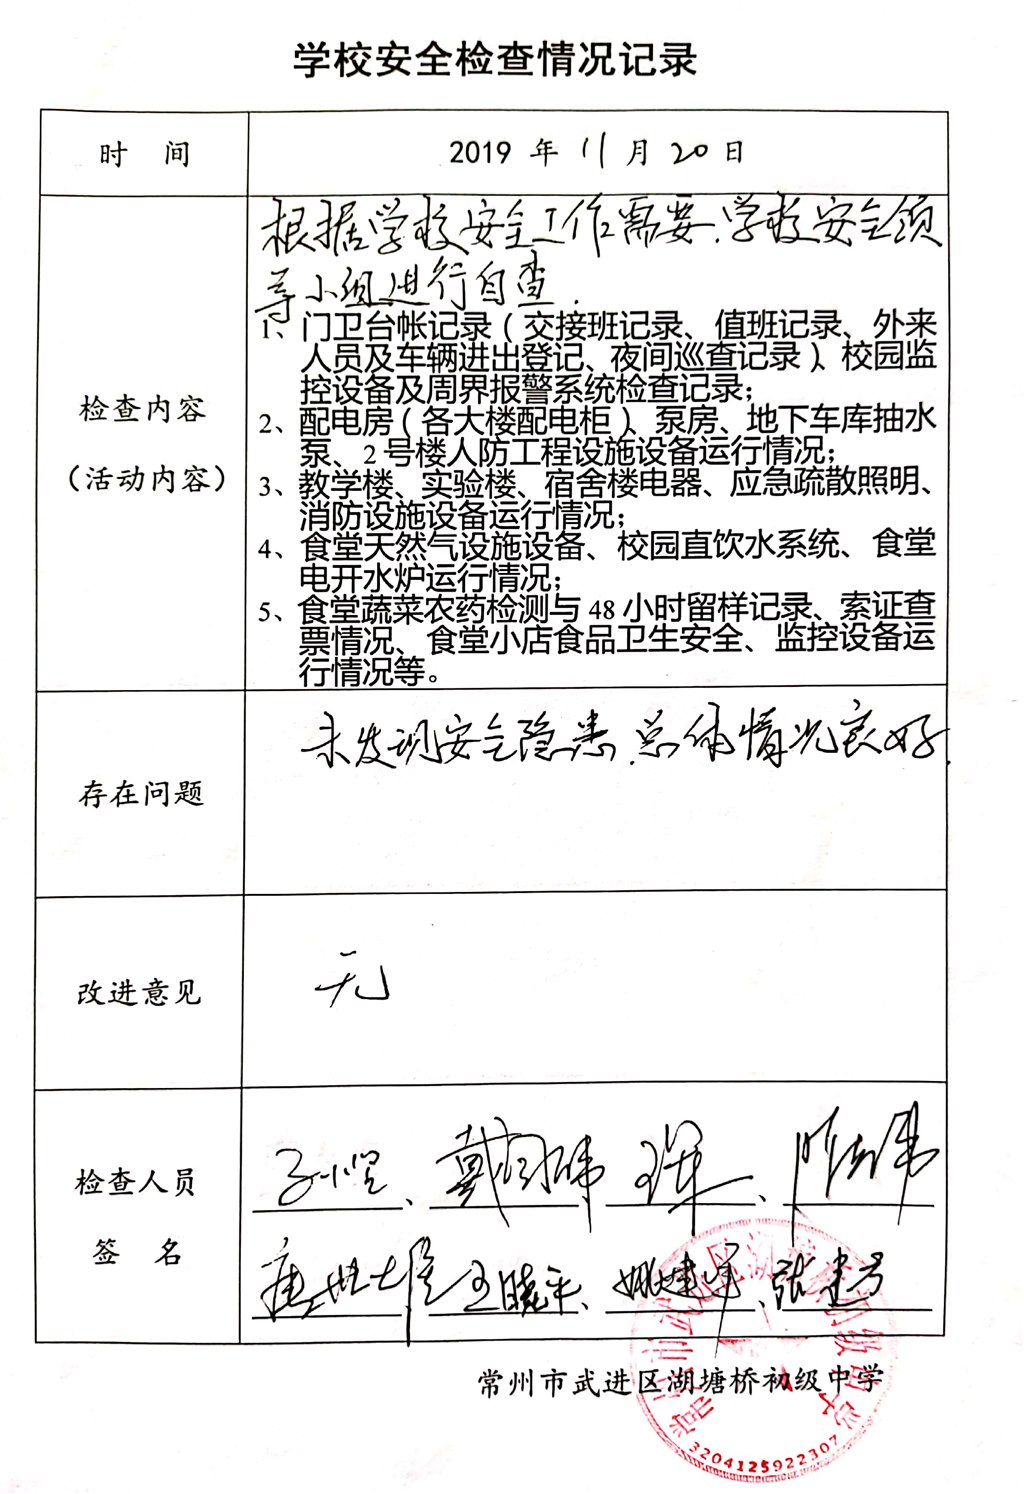 学校安全检查情况记录
时 间
2019 年 11 月 20 日
检查内容
（活动内容）
根据学校安全工作需要.学校安全领
导小组进行自查.
1、门卫台帐记录（交接班记录、值班记录、外来
人员及车辆进出登记、夜间巡查记录）、校园监
控设备及周界报警系统检查记录；
2、配电房（各大楼配电柜）、泵房、地下车库抽水
泵、2号楼人防工程设施设备运行情况；
3、教学楼、实验楼、宿舍楼电器、应急疏散照明、
消防设施设备运行情况；
4、食堂天然气设施设备、校园直饮水系统、食堂
电开水炉运行情况；
5、食堂蔬菜农药检测与 48 小时留样记录、索证查
票情况、食堂小店食品卫生安全、监控设备运
行情况等。
存在问题
未发现安全隐患.总体情况良好.
改进意见
无
检查人员
签 名
王晓平、姚建军、张建芳
常州市武进区湖塘桥初级中学
3204125922307